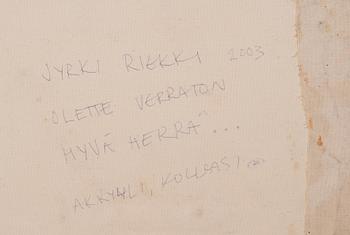 JYRKI RIEKKI 2003
"OLETTE VERRATON
HYVÄ HERRA"...
AKRYYLI, KOLLAASI